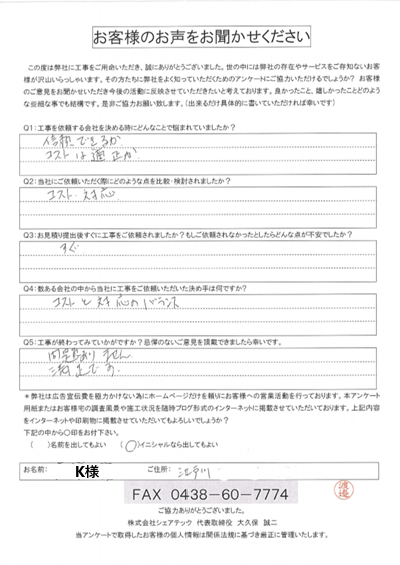 お客様のお声をお聞かせください
この度は弊社に工事をご用命いただき、誠にありがとうございました。世の中には弊社の存在やサービスをご存知ないお客様
が沢山いらっしゃいます。その方たちに弊社をよく知っていただくためのアンケートにご協力いただけるでしょうか? お客様
のご意見をお聞かせいただき今後の活動に反映させていただきたいと考えております。良かったこと、嬉しかったことどのよう
な些細な事でも結構です、是非ご協力お願い致します。(出来るだけ具体的に書いていただければ幸いです)
Q1:工事を依頼する会社を決める時にどんなことで悩まれていましたか?
信頼できるか
コストは適正か
Q2:当社にご依頼いただく際にどのような点を比較・検討されましたか?
コスト・対応
Q3:お見積り提出後すぐに工事をご依頼されましたか?もしご依頼されなかったとしたらどんな点が不安でしたか?
すぐ
Q4:数ある会社の中から当社に工事をご依頼いただいた決め手は何ですか?
コストと対応のバランス
Q5:工事が終わってみていかがですか?忌憚のないご意見を頂戴できましたら幸いです。
問題ありません
満足です
*弊社は広告宣伝費を極力かけない為にホームページだけを頼りにお客様への営業活動を行っております。本アンケート
用紙またはお客様宅の調査風景や施工状況を随時ブログ形式のインターネットに掲載させていただいております。上記内容
をインターネットや印刷物に掲載させていただいてもよろしいでしょうか?
下記の中から○印をお付下さい。
( )名前を出してもよい (○)イニシャルなら出してもよい
お名前: K様 ご住所: 江戸川
FAX 0438-60-7774
渡邉
ご協力ありがとうございました。
株式会社シェアテック 代表取締役 大久保 誠二
当アンケートで取得したお客様の個人情報は関係法規に基づき厳正に管理いたします。